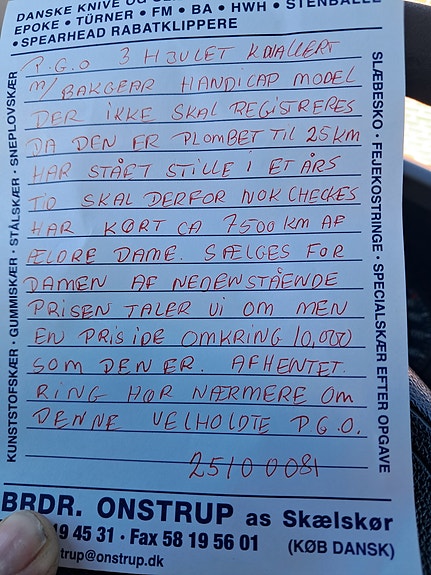 DANSKE KNIVE OG
EPOKE • TÜRNER • FM • BA • HWH • STENBALLE
• SPEARHEAD RABATKLIPPERE
KUNSTSTOFSKÆR • GUMMISKÆR • STÅLSKÆR • SNEPLOVSKÆR
SLÆBESKO • FEJEKOSTRINGE • SPECIALSKÆR EFTER OPGAVE
P.G.O 3 HJULET KNALLERT
M/ BAKGEAR HANDICAP MODEL
DER IKKE SKAL REGISTRERES
DA DEN ER PLOMBET TIL 25 KM
HAR STÅET STILLE I ET ÅRS
TID SKAL DERFOR NOK CHECKES
HAR KØRT CA 7500 KM AF
ÆLDRE DAME. SÆLGES FOR
DAMEN AF NEDENSTÅENDE
PRISEN TALER VI OM MEN
EN PRIS IDE OMKRING 10,000
SOM DEN ER. AFHENTET.
RING HØR NÆRMERE OM
DENNE VELHOLDTE P.G.O.
25100081
BRDR. ONSTRUP as Skælskør
19 45 31 • Fax 58 19 56 01 (KØB DANSK)
trup@onstrup.dk